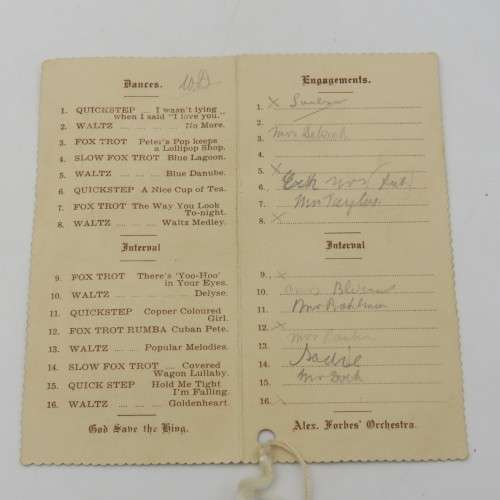 Dances.
1. QUICKSTEP I wasn't lying
when I said "I love you."
2. WALTZ No More.
3. FOX TROT Peter's Pop keeps
a Lollipop Shop.
4. SLOW FOX TROT Blue Lagoon.
5. WALTZ Blue Danube.
6. QUICKSTEP A Nice Cup of Tea.
7. FOX TROT The Way You Look
To-night.
8. WALTZ Waltz Medley.
Interval
9. FOX TROT There's 'Yoo-Hoo'
in Your Eyes.
10. WALTZ Delyse.
11. QUICKSTEP Copper Coloured
Girl.
12. FOX TROT RUMBA Cuban Pete.
13. WALTZ Popular Melodies.
14. SLOW FOX TROT Covered
Wagon Lullaby.
15. QUICK STEP Hold Me Tight
I'm Falling.
16. WALTZ Goldenheart.
God Save the King.
Engagements.
1. X
2.
3. Mrs
4.
5. X
6.
7. Mrs Taylor
8. X
Interval
9. X
10. Mrs
11. Mrs
12. X
13. Mrs
14. Sadie
15. Mr
16.
Alex. Forbes' Orchestra.